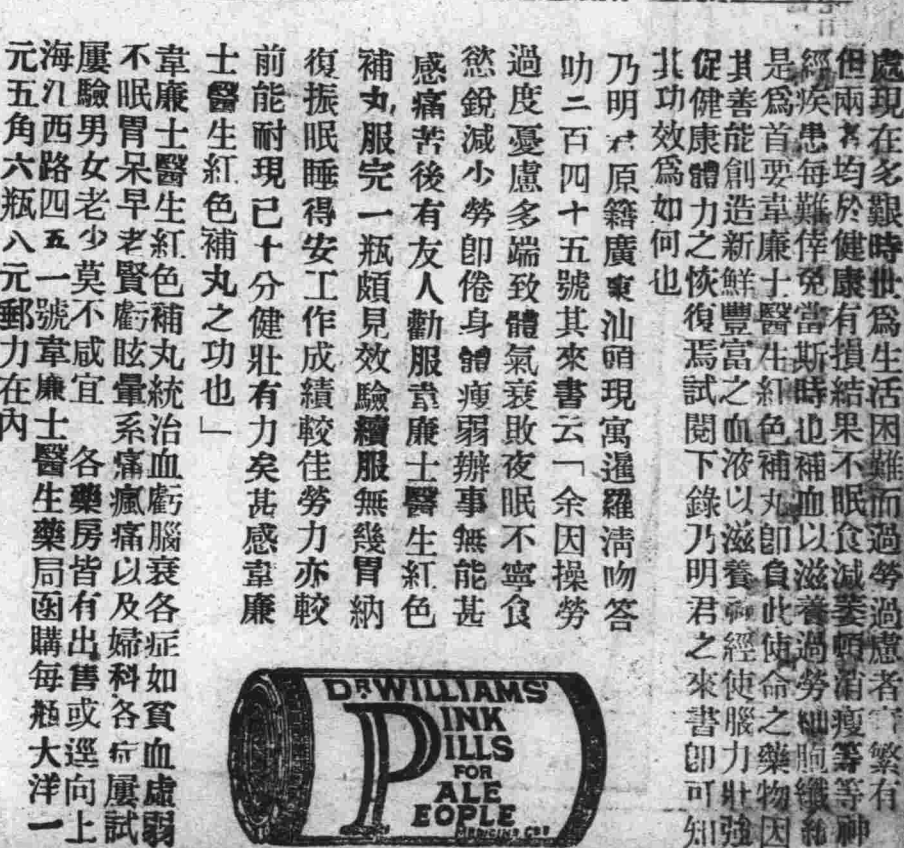 處現在多艱時世爲生活困難而過勞過慮者實繁有
但兩者均於健康有損結果不眠食減萎頓消瘦等等神
經疾患每難倖免當斯時也補血以滋養過勞細胞纖維
是爲首要韋廉士醫生紅色補丸卽負此使命之藥物因
其善能創造新鮮豐富之血液以滋養神經使腦力壯強
促健康體力之恢復焉試閱下錄乃明君之來書卽可知
其功效爲如何也
乃明君原籍廣東汕頭現寓暹羅淸吻答
叻二百四十五號其來書云「余因操勞
過度憂慮多端致體氣衰敗夜眠不寧食
慾銳減少勞卽倦身體瘦弱辦事無能甚
感痛苦後有友人勸服韋廉士醫生紅色
補丸服完一瓶頗見效驗續服無幾胃納
復振眠睡得安工作成績較佳勞力亦較
前能耐現已十分健壯有力矣甚感韋廉
士醫生紅色補丸之功也」
韋廉士醫生紅色補丸統治血虧腦衰各症如貧血虛弱
不眠胃呆早老腎虧眩暈系痛瘋痛以及婦科各症屢試
屢驗男女老少莫不咸宜 各藥房皆有出售或逕向上
海江西路四五一號韋廉士醫生藥局函購每瓶大洋一
元五角六瓶八元郵力在內
DR WILLIAMS'
PINK
PILLS
FOR
PALE
PEOPLE